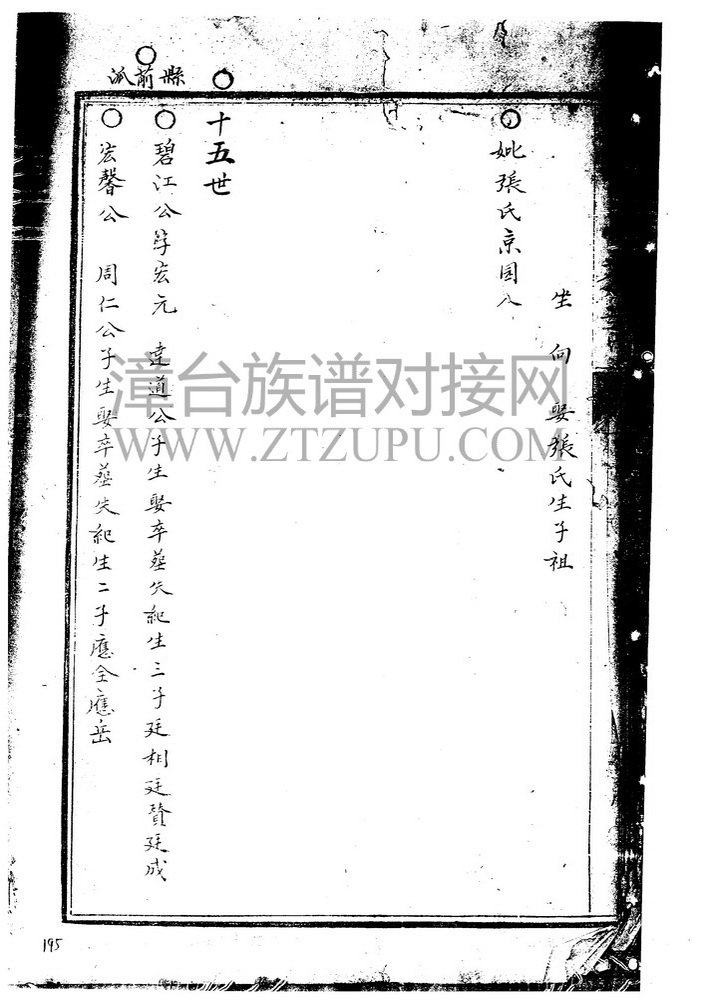 坐 向 娶張氏生子祖
妣張氏京园人
十五世
碧江公字宏元 達道公子生娶卒葬失紀生三子廷相廷贊廷成
宏馨公 周仁公子生娶卒葬失紀生二子應全應岳
派前縣
漳台族谱对接网
WWW.ZTZUPU.COM
195